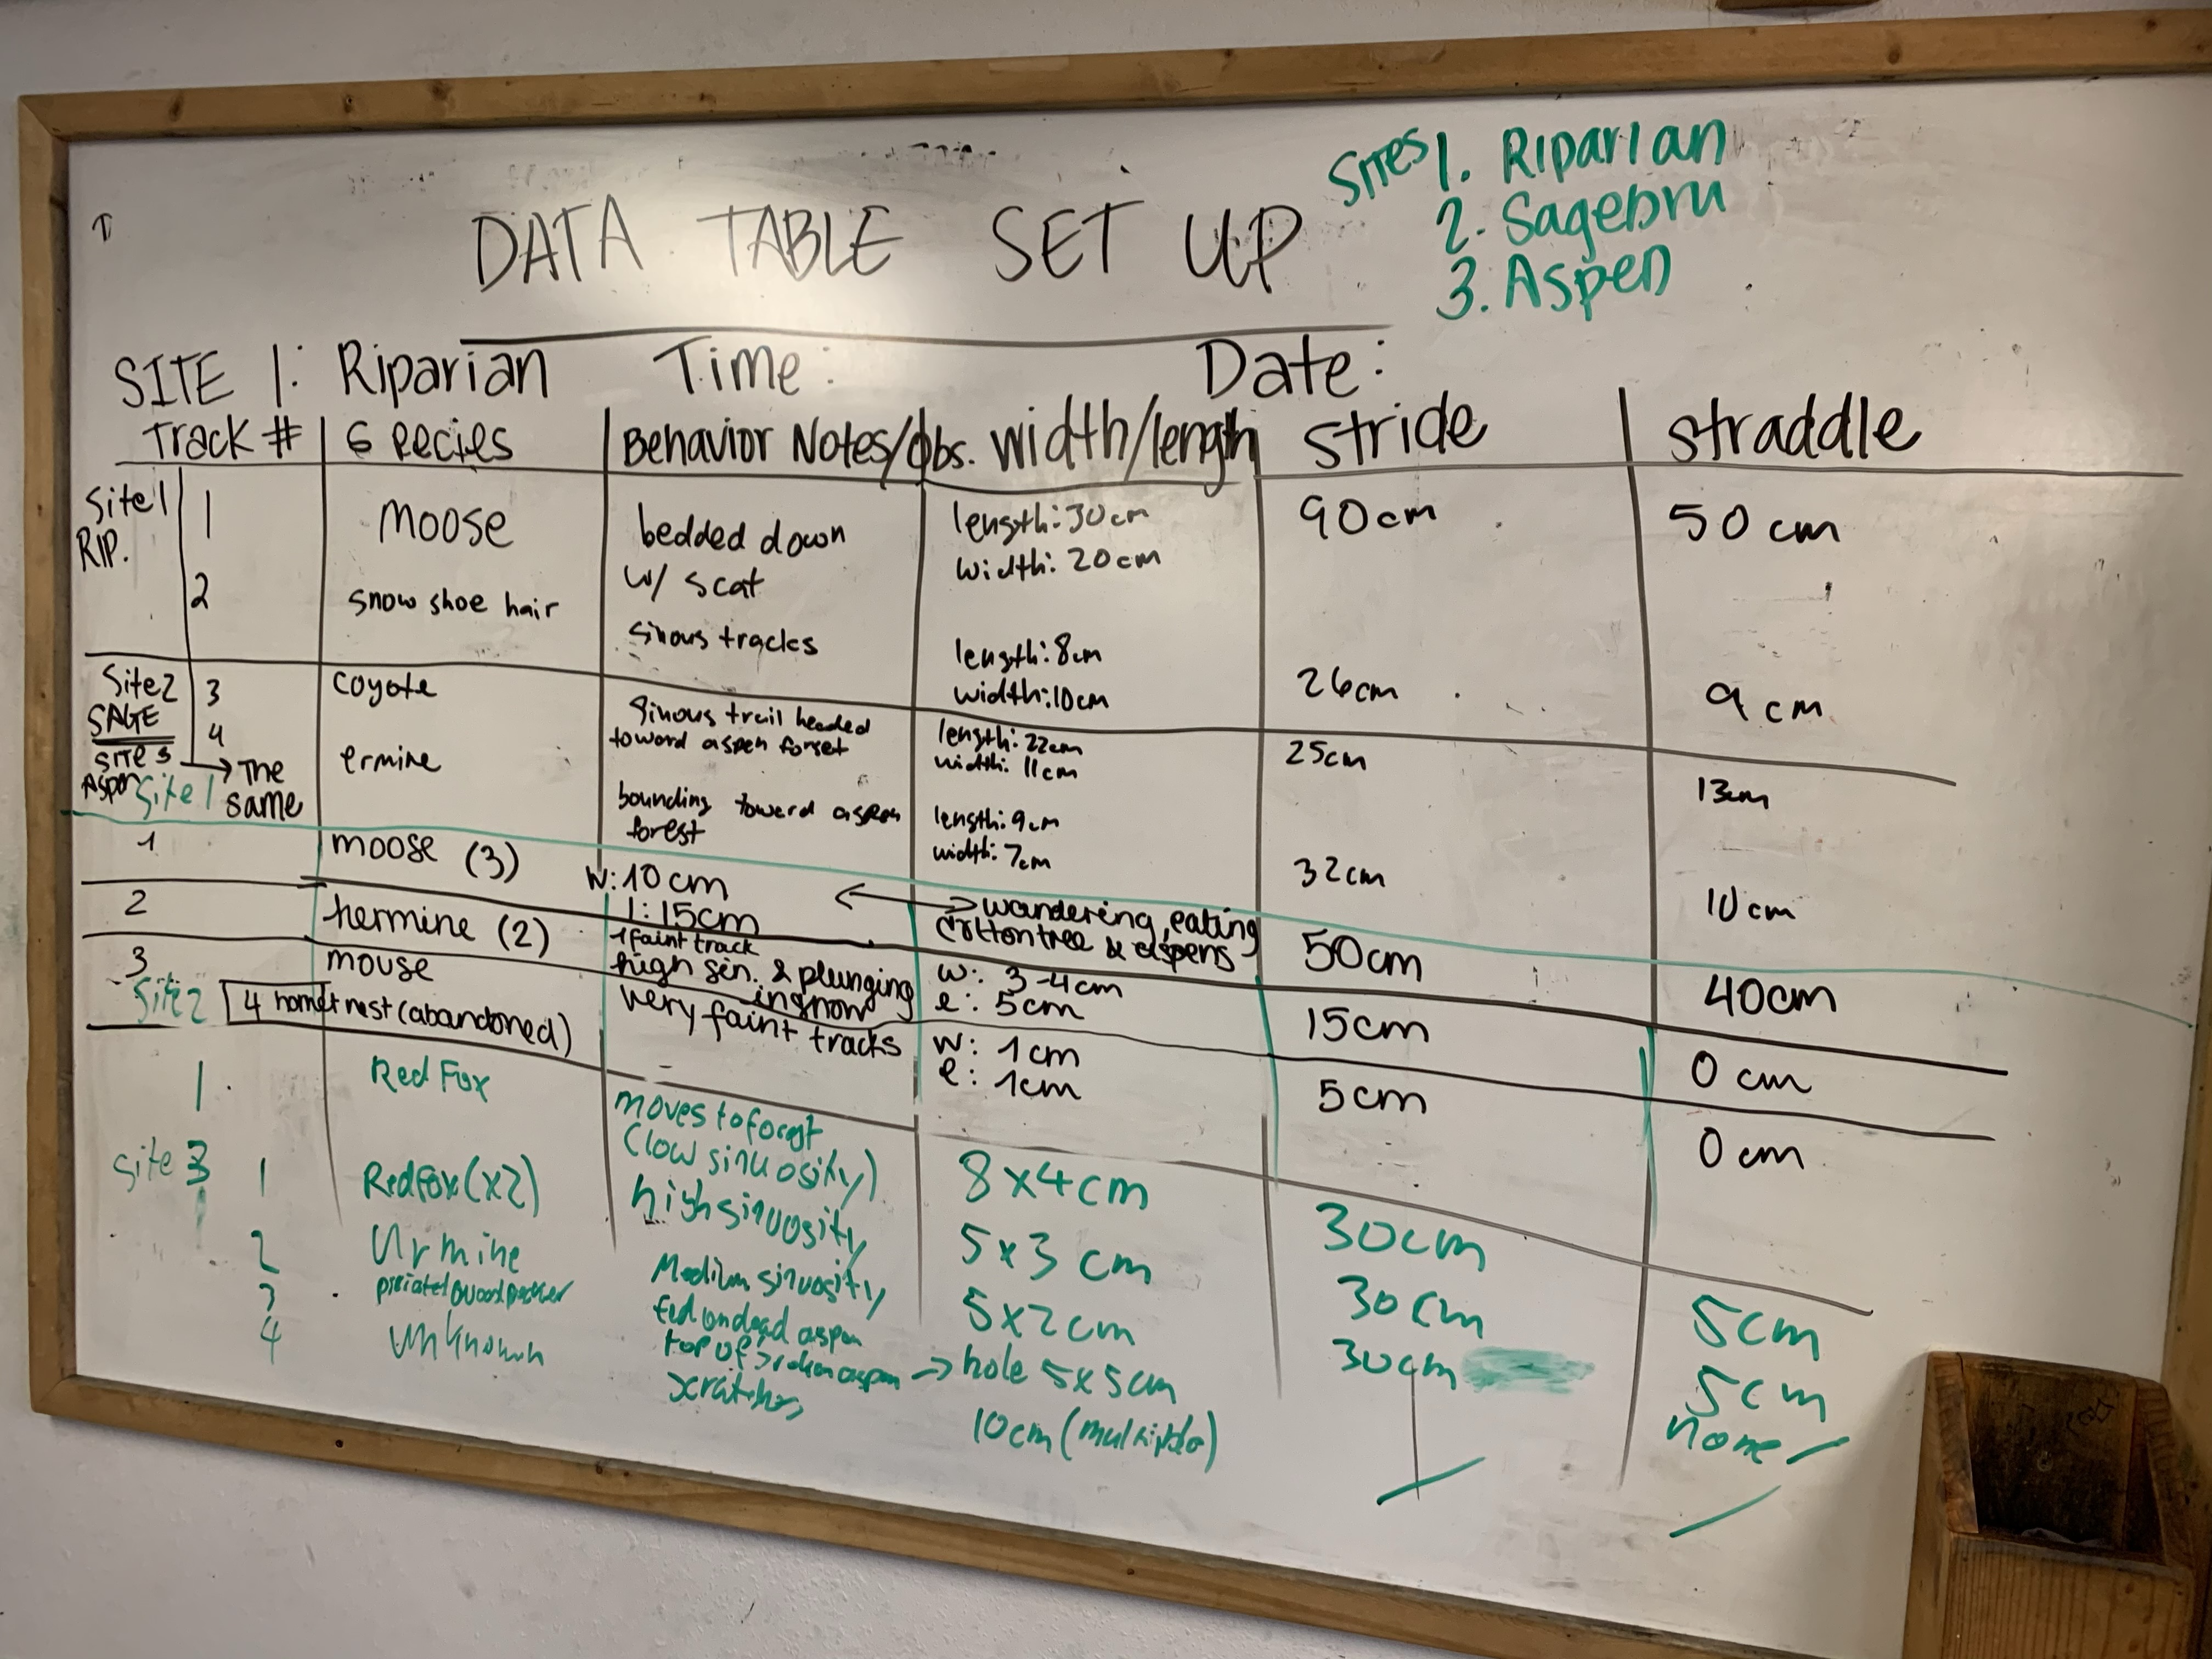 DATA TABLE SET UP
SITES 1. Riparian
2. Sagebru
3. Aspen
SITE 1: Riparian Time: Date:
Track # Species Behavior Notes/Obs. width/length stride straddle
Site 1 1 Moose bedded down length: 30cm 90cm 50 cm
RIP. w/ scat width: 20cm
2 snow shoe hair sinous tracks length: 8cm 26cm 9 cm
width: 10cm
Site 2 3 coyote Sinous trail headed length: 22cm 25cm 13cm
SAGE toward aspen forset width: 11cm
4 ermine bounding toward aspen length: 9cm 32cm 10cm
forest width: 7cm
SITE 3 → The
Aspen same
Site 1
1 moose (3) W: 10cm ↔ wandering, eating 50cm 40cm
l: 15cm cottontree & aspens
2 hermine (2) 1 faint track w: 3-4cm 15cm 0 cm
high sin. & plunging l: 5cm
in snow
3 mouse very faint tracks w: 1cm 5cm 0cm
l: 1cm
4 hornet nest (abandoned)
Site 2
1 Red Fox moves to forest 8x4cm 30cm 5cm
(low sinuosity)
Site 3 1 Red Fox (x2) high sinuosity 5x3 cm 30cm 5cm
2 Urmine Medium sinuosity 5x2cm 30cm none
3 fed on dead aspen
top of broken aspen → hole 5x5cm
4 Unknown scratches 10cm (multiple)